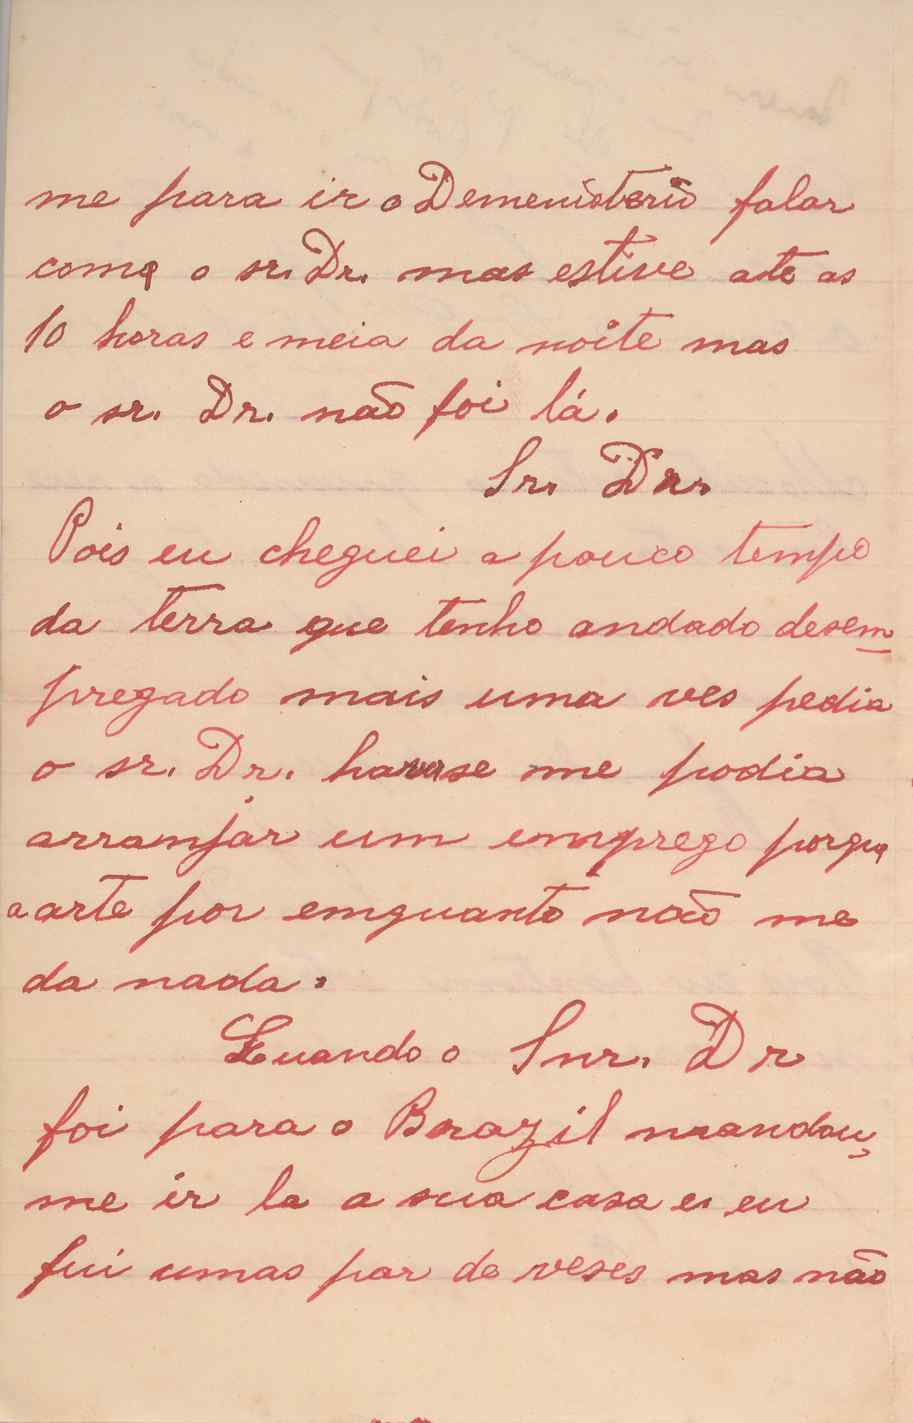 me para ir o Demenisterio falar
come o sr. Dr. mas estive ate as
10 horas e meia da noite mas
o sr. Dr. não foi lá.
Sr. Dr.
Pois eu cheguei a pouco tempo
da terra que tenho andado desem
pregado mais uma ves pedia
o sr. Dr. se me podia
arranjar um emprego porque
a arte por emquanto não me
da nada.
Quando o Snr. Dr
foi para o Brazil mandou-
me ir la a sua casa e eu
fui umas par de veses mas não